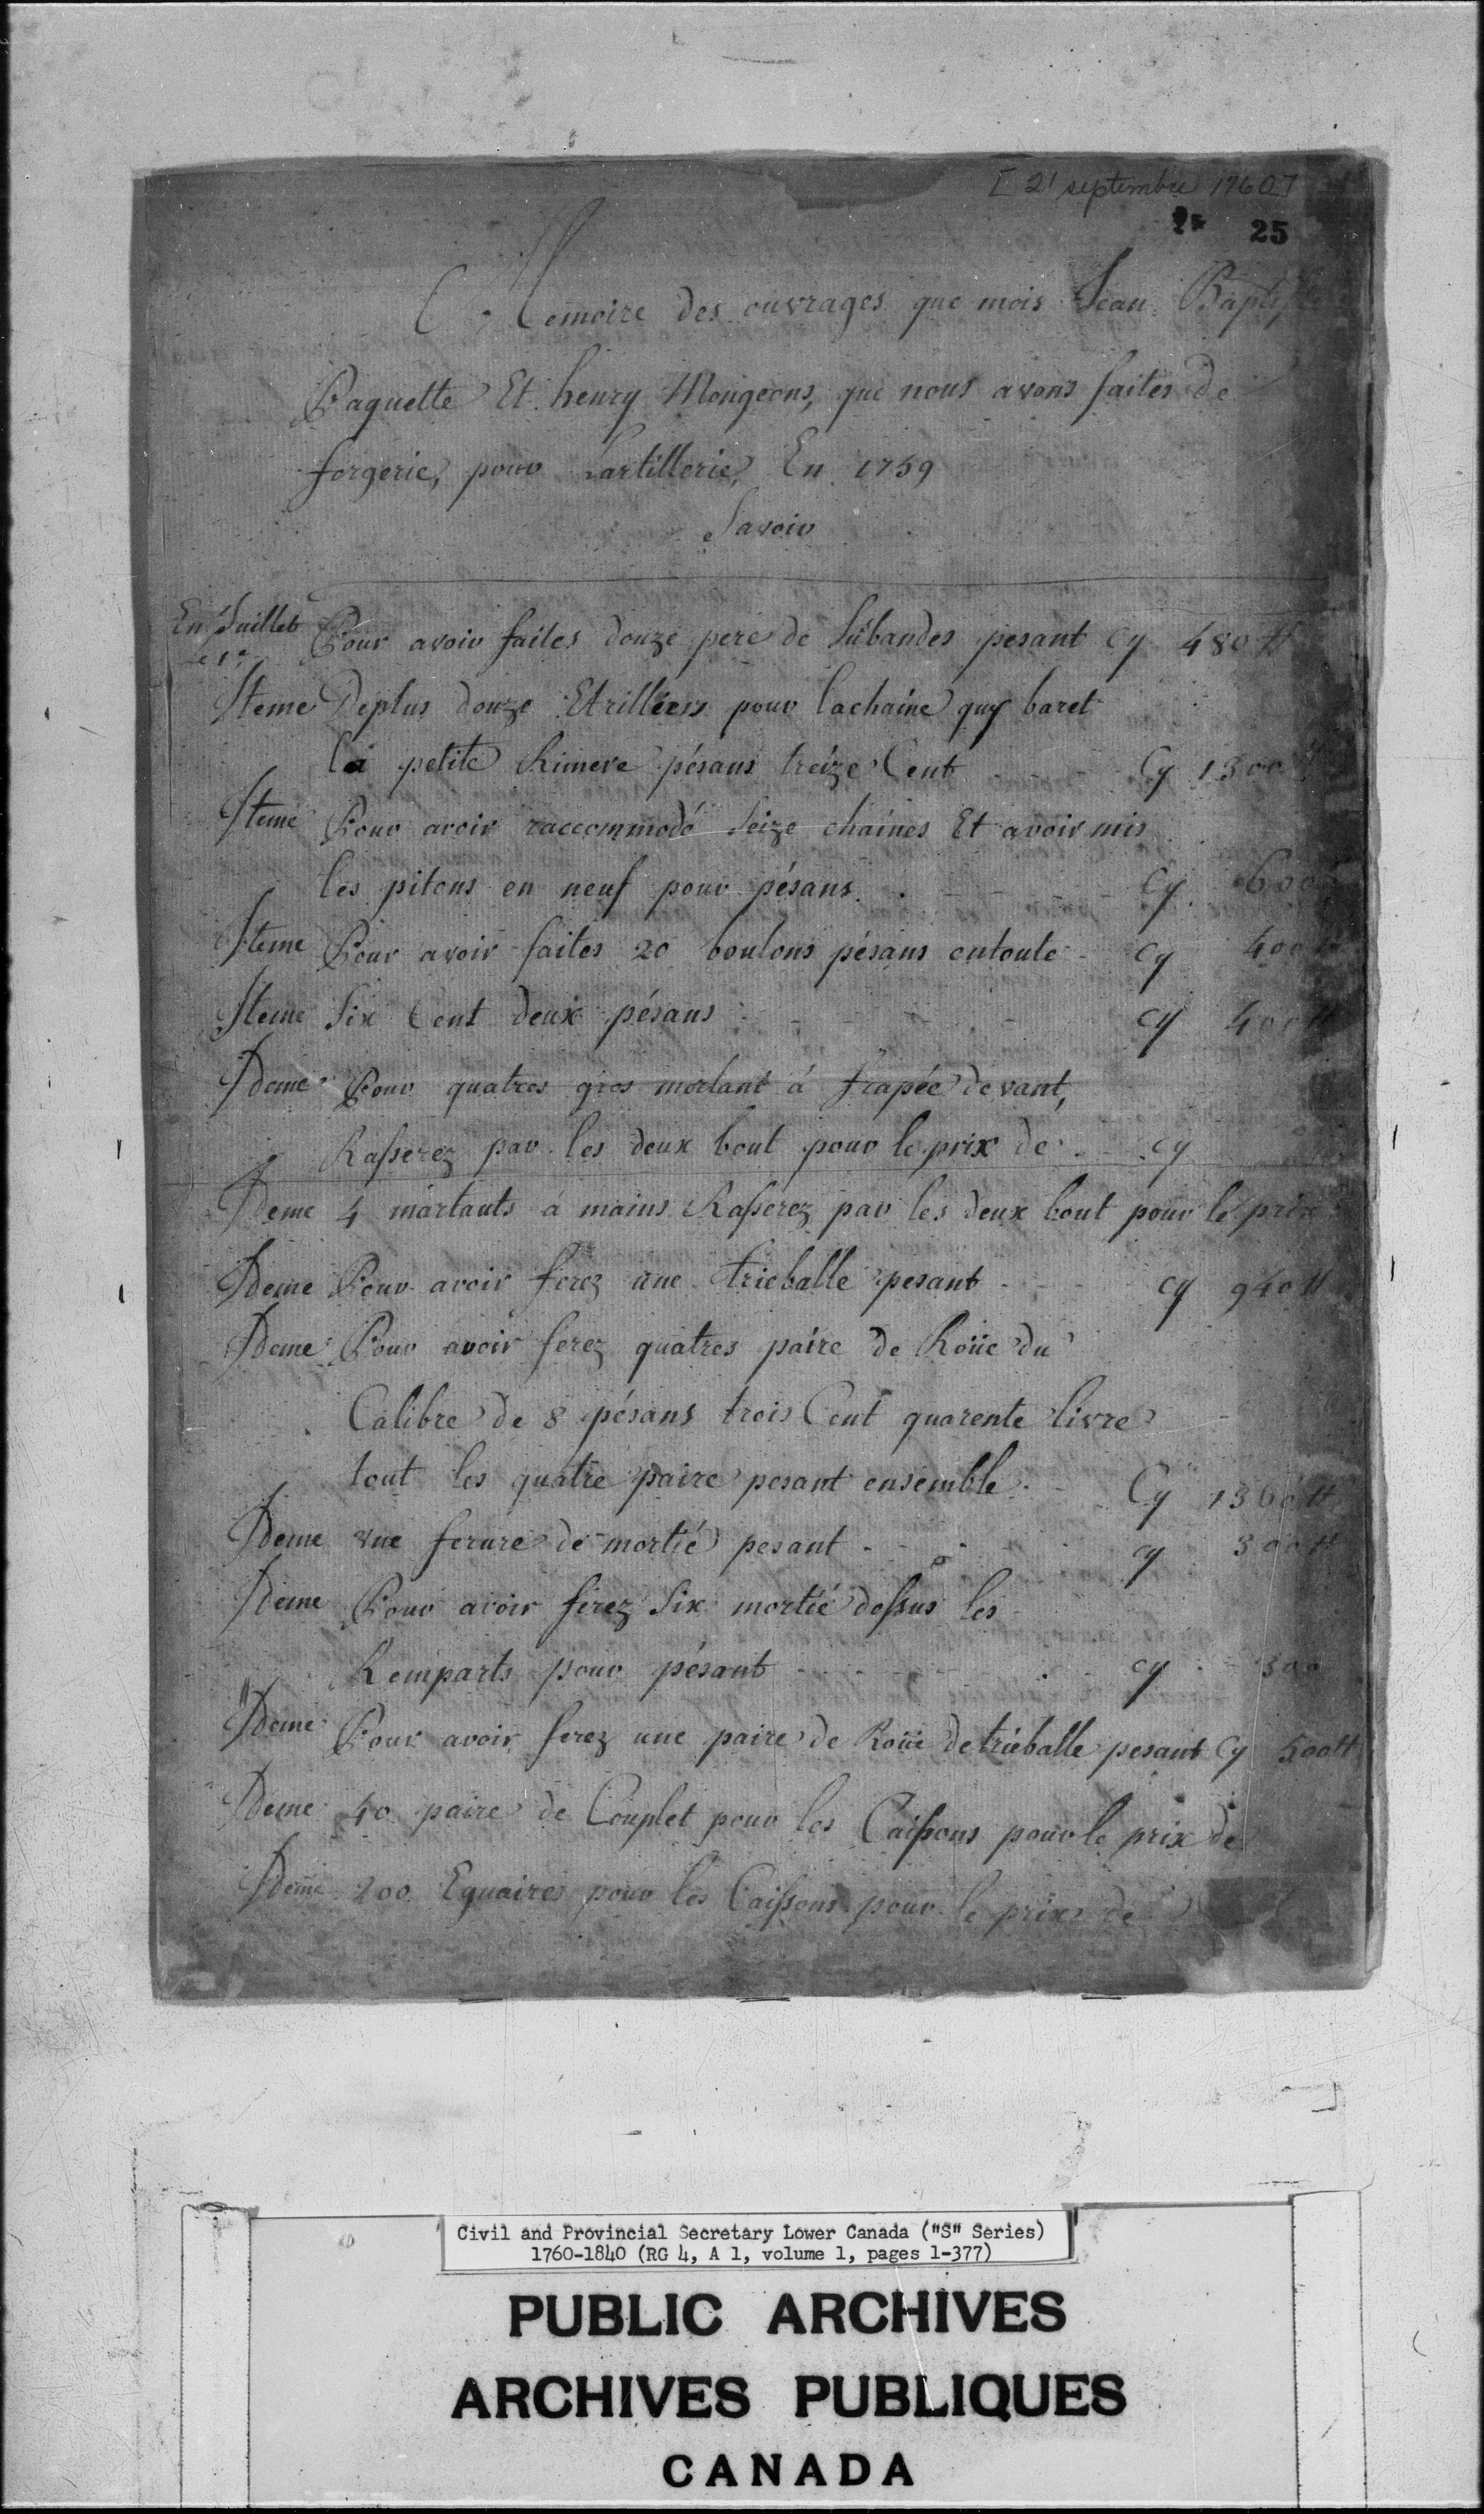 [ 21 septembre 1760 ]
25
Memoire des ouvrages que mois Jean Baptiste
Paquette Et henry Mongeons, que nous avons faites de
forgerie, pour Lartillerie, En 1759
Savoir
En Juillet Pour avoir faites douze pere de Subandes pesant Cy 480 ₶
le 1er
Iteme Deplus douze Etrilliers pour lachaine quy baret
la petite Rimere pésans treize Cent Cy 1300 ₶
Iteme Pour avoir raccommodé Seize chaines Et avoir mis
les pitons en neuf pour pésans Cy 600
Iteme Pour avoir faites 20 boulons pésans entoute Cy 400 ₶
Iteme Six Cent deux pésans Cy 400 ₶
Ideme Pour quatres gros mortant á frapée devant,
Rasserez par les deux bout pour le prix de Cy
Ideme 4 martauts a mains Rasserez par les deux bout pour le prix
Ideme Pour avoir ferez une trieballe pesant Cy 940 ₶
Ideme Pour avoir ferez quatres paire de Roüe du
Calibre de 8 pésans trois Cent quarente livre
tout les quatre paire pesant ensemble Cy 1360 ₶
Ideme une ferure de mortié pesant cy 300 ₶
Ideme Pour avoir ferez Six mortié dessus les
Remparts pour pésant cy 300
Ideme Pour avoir ferez une paire de Roüe detrieballe pesant Cy 500 ₶
Ideme 40 paire de Couplet pour les Caissons pour le prix de
Ideme 200 Equaires pour les Caissons pour le prix de
Civil and Provincial Secretary Lower Canada ("S" Series)
1760-1840 (RG 4, A 1, volume 1, pages 1-377)
PUBLIC ARCHIVES
ARCHIVES PUBLIQUES
CANADA